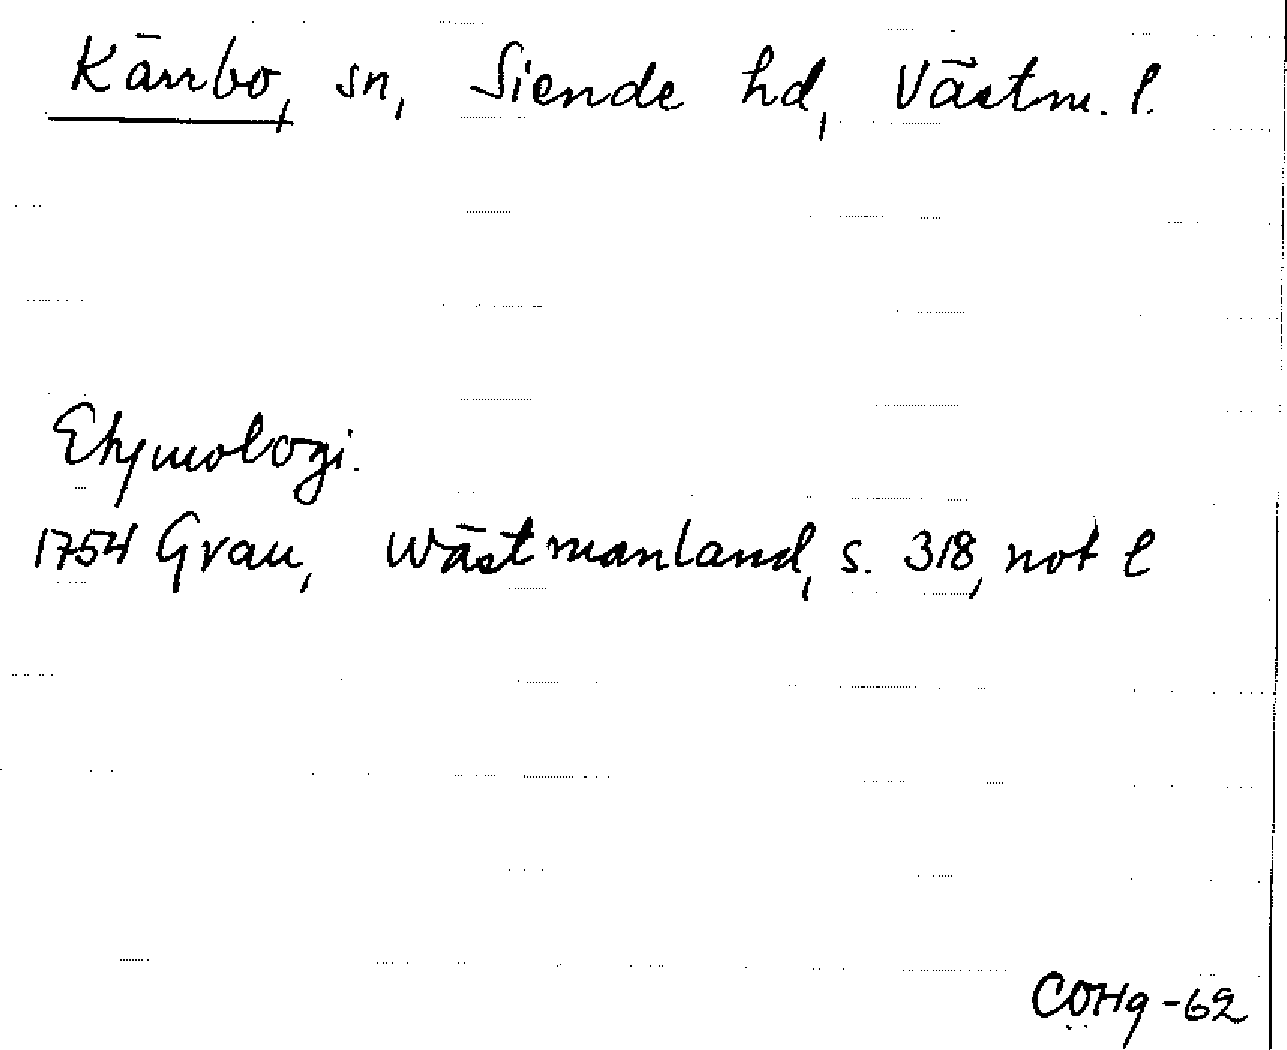 Kärrbo, sn, Siende hd, Västm. l.
Etymologi.
1754 Grau, Wästmanland, s. 318, not l
COHg-62